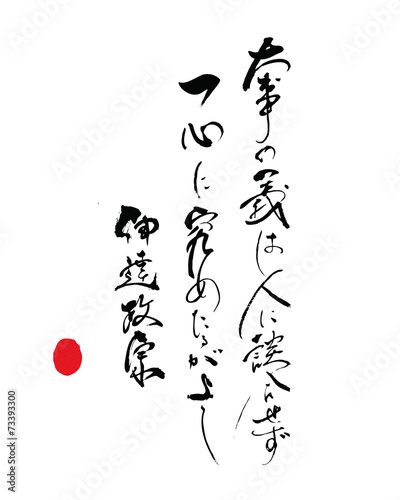 大事の義は人に談合せず
一心に究めたるがよし
伊達政宗
Adobe Stock | #73393300